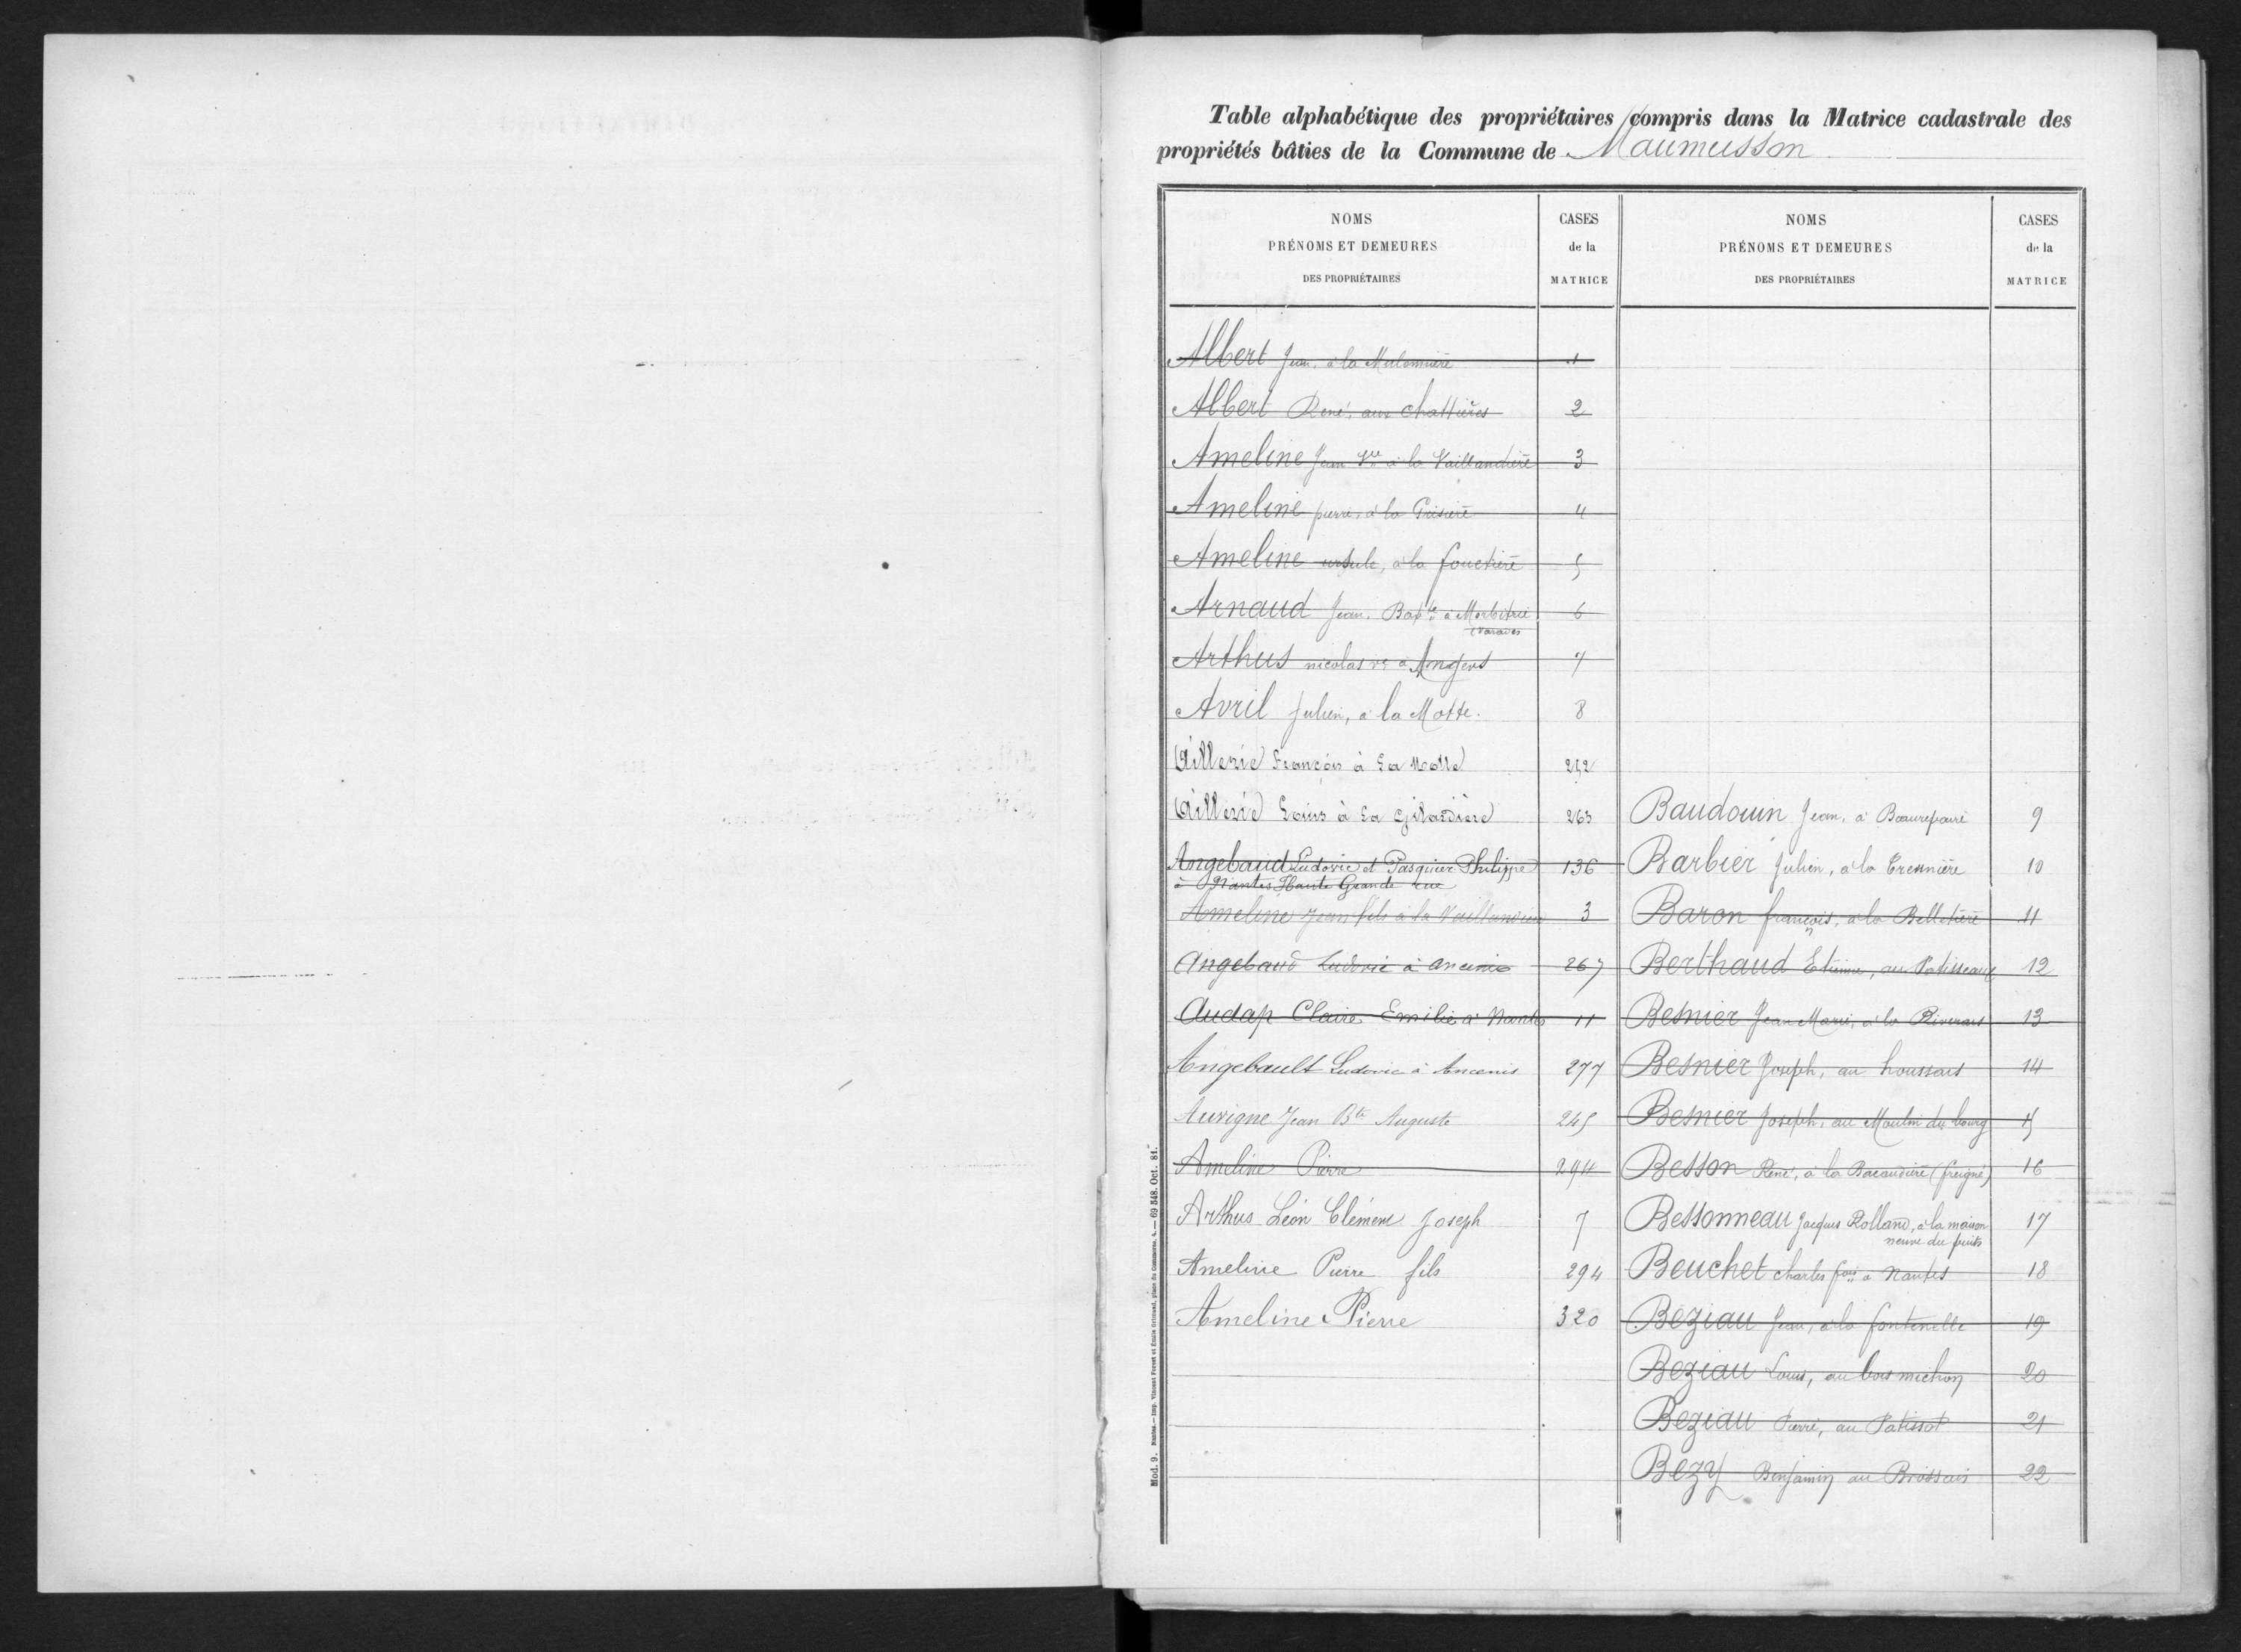 Table alphabétique des propriétaires compris dans la Matrice cadastrale des
propriétés bâties de la Commune de Maumusson
NOMS
PRÉNOMS ET DEMEURES
DES PROPRIÉTAIRES
CASES
de la
MATRICE
NOMS
PRÉNOMS ET DEMEURES
DES PROPRIÉTAIRES
CASES
de la
MATRICE
Albert Jean, à la Mulonnière 1
Albert René, aux Chattières 2
Ameline Jean Vve à la Vaillandière 3
Ameline pierre, à la Grisière 4
Ameline ursule, à la 5
Arnaud Jean, Bapte à 6
(Varades
Arthus nicolas Ve à Angers 7
Avril Julien, à la Motte. 8
Aillerie François à La Motte 242
Aillerie Louis à La Gilardière 263
Angebaud Ludovic et Pasquier Philippe 136
à Nantes Haute Grande rue
Ameline Jean fils à la Vaillandière 3
Angebaud Ludovic à Ancenis 267
Audap Claire Emilie à Nantes 11
Angebault Ludovic à Ancenis 277
Auvigne Jean Bte Auguste 245
Ameline Pierre 294
Arthus Léon Clément Joseph 7
Ameline Pierre fils 294
Ameline Pierre 320
Baudouin Jean, à Beaurepaire 9
Barbier Julien, à la 10
Baron françois, à la Belletière 11
Berthaud Etienne, au Patisseau 12
Besnier Jean Marie, à la Riverais 13
Besnier Joseph, au houssais 14
Besnier Joseph, au Moulin du bourg 15
Besson René, à la Bacaudière (freigné) 16
Bessonneau Jacques Rolland, à la maison 17
neuve du puits
Beuchet Charles fois à Nantes 18
Béziau Jean, à la fontenelle 19
Beziau Louis, au bois michon 20
Beziau Pierre, au Patissot 21
Bezy Benjamin au Brossais 22
Mod. 9. Nantes.— Imp. Vincent Forest et Émile Grimaud, place du Commerce, 4. — 69 548. Oct. 81.